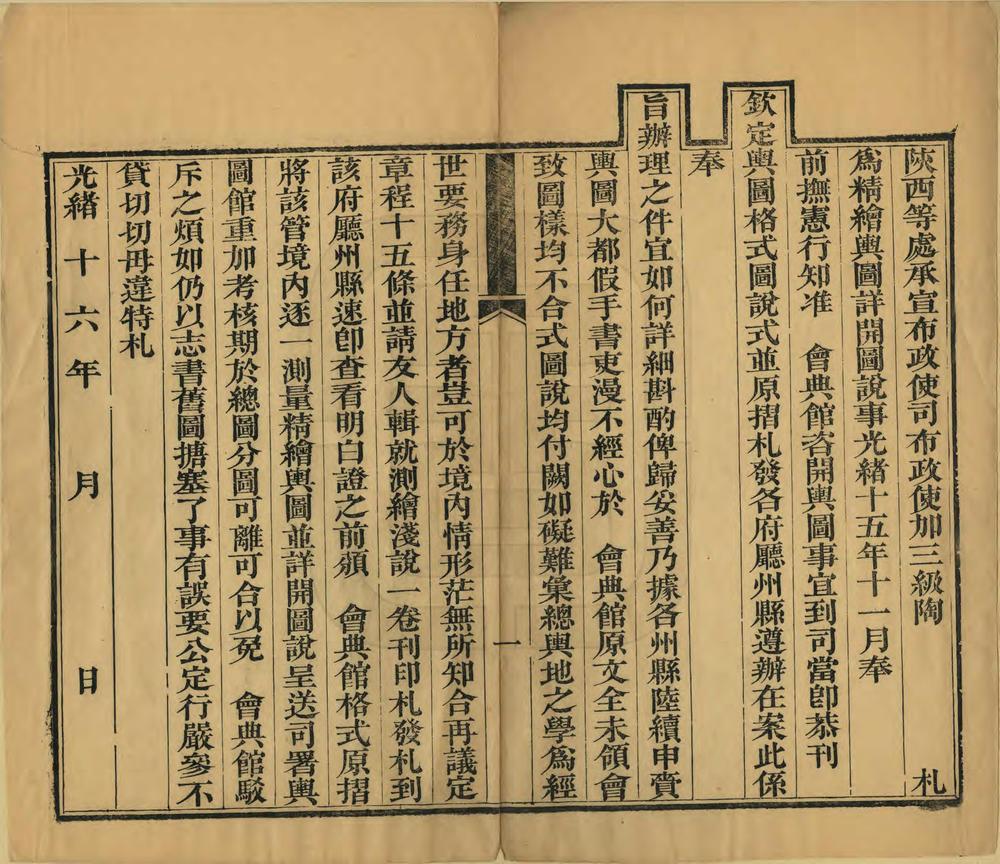 陝西等處承宣布政使司布政使加三級陶　札
爲精繪輿圖詳開圖說事光緒十五年十一月奉
前撫憲行知准　會典館咨開輿圖事宜到司當卽恭刊
欽定輿圖格式圖說式並原摺札發各府廳州縣遵辦在案此係
奉
旨辦理之件宜如何詳細斟酌俾歸妥善乃據各州縣陸續申賫
輿圖大都假手書吏漫不經心於　會典館原文全未領會
致圖樣均不合式圖說均付闕如礙難彙總輿地之學爲經
一
世要務身任地方者豈可於境內情形茫無所知合再議定
章程十五條並請友人輯就測繪淺說一卷刊印札發札到
該府廳州縣速卽查看明白證之前頒　會典館格式原摺
將該管境內逐一測量精繪輿圖並詳開圖說呈送司署輿
圖館重加考核期於總圖分圖可離可合以免　會典館駁
斥之煩如仍以志書舊圖搪塞了事有誤要公定行嚴參不
貸切切毋違特札
光緒十六年　月　日